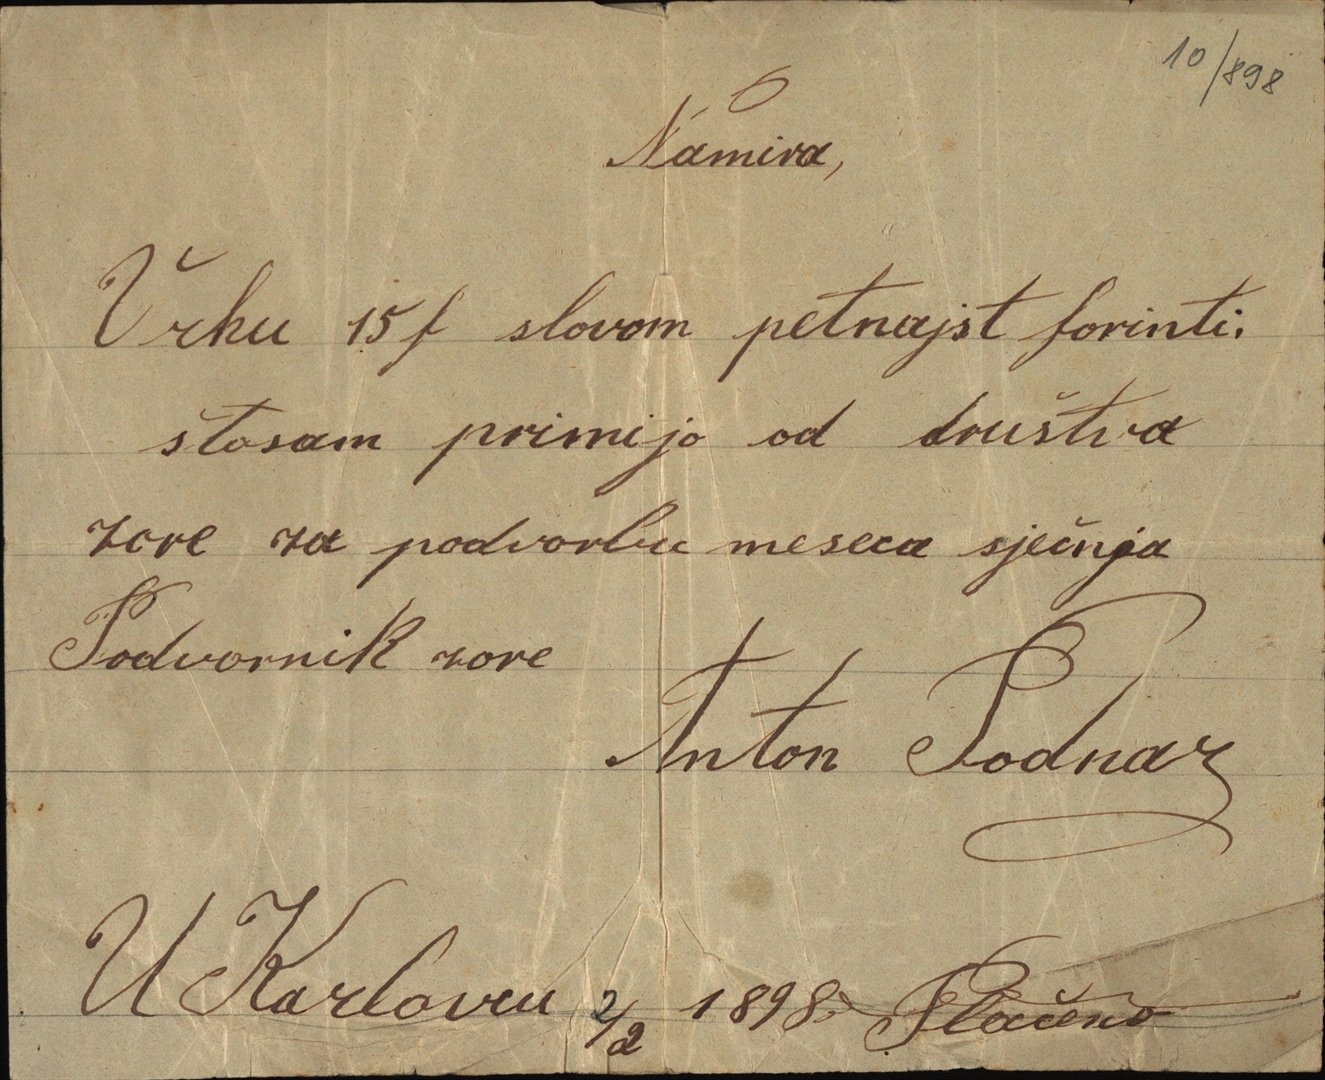 10/898
Namira,
Vrhu 15 f slovom petnajst forinti.
štosam primijo od društva
zore za podvorbu meseca sječnja
Podvornik zore
Anton Podnar
U Karlovcu 2/2 1898. Plaćeno